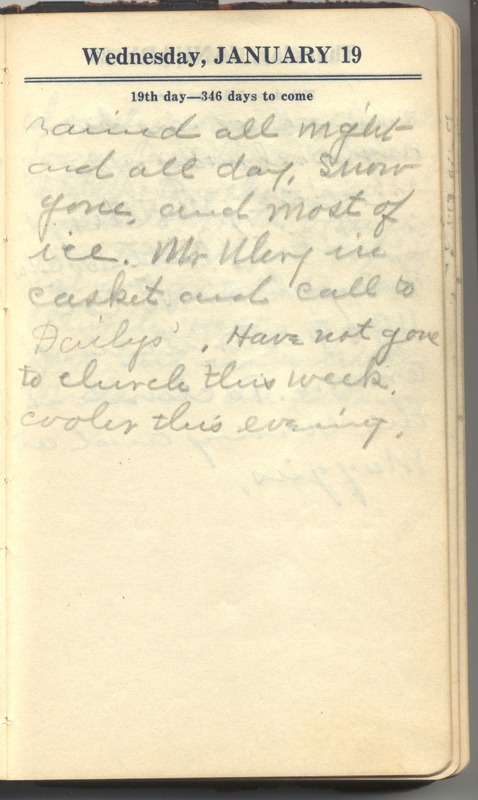 Wednesday, JANUARY 19
19th day—346 days to come
rained all night
and all day, snow
gone, and most of
ice. Mr Ulery in
casket and call to
Dailys'. Have not gone
to church this week.
cooler this evening.